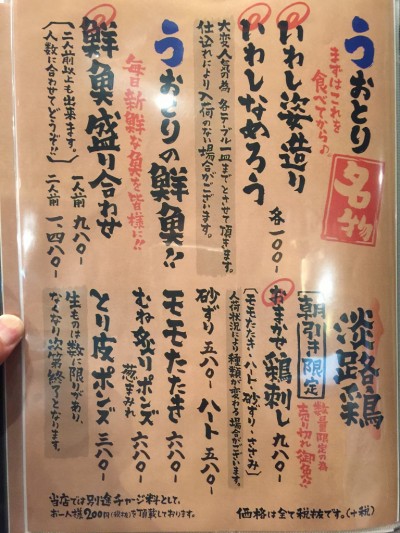 うおとり
まずはこれを
食べてから♪
名物
いわし姿造り
いわしなめろう
各一〇〇-
大変人気の為 各テーブル一皿までとさせて頂きます。
仕込れにより入荷のない場合がございます。
うおとりの鮮魚!!
毎日新鮮な魚を皆様に!!
鮮魚盛り合わせ
一人前 九八〇-
二人前 一、四八〇-
二人前以上も出来ます。
人数に合わせてどうぞ!!
淡路鶏
朝引き限定
数量限定の為
売り切れ御免!!
おまかせ鶏刺し 九八〇-
モモたたき ハト・砂ずり・ささみ
入荷状況により種類が変わる場合がございます。
砂ずり 五八〇- ハト 五八〇-
モモたたき 六八〇-
むね炙りポンズ 六八〇-
葱まみれ
とり皮ポンズ 三八〇-
生ものは数に限りがあり、
なくなり次第終了となります。
価格は全て税抜です。(+税)
当店では別途チャージ料として、
お一人様200円(税抜)を頂戴しております。